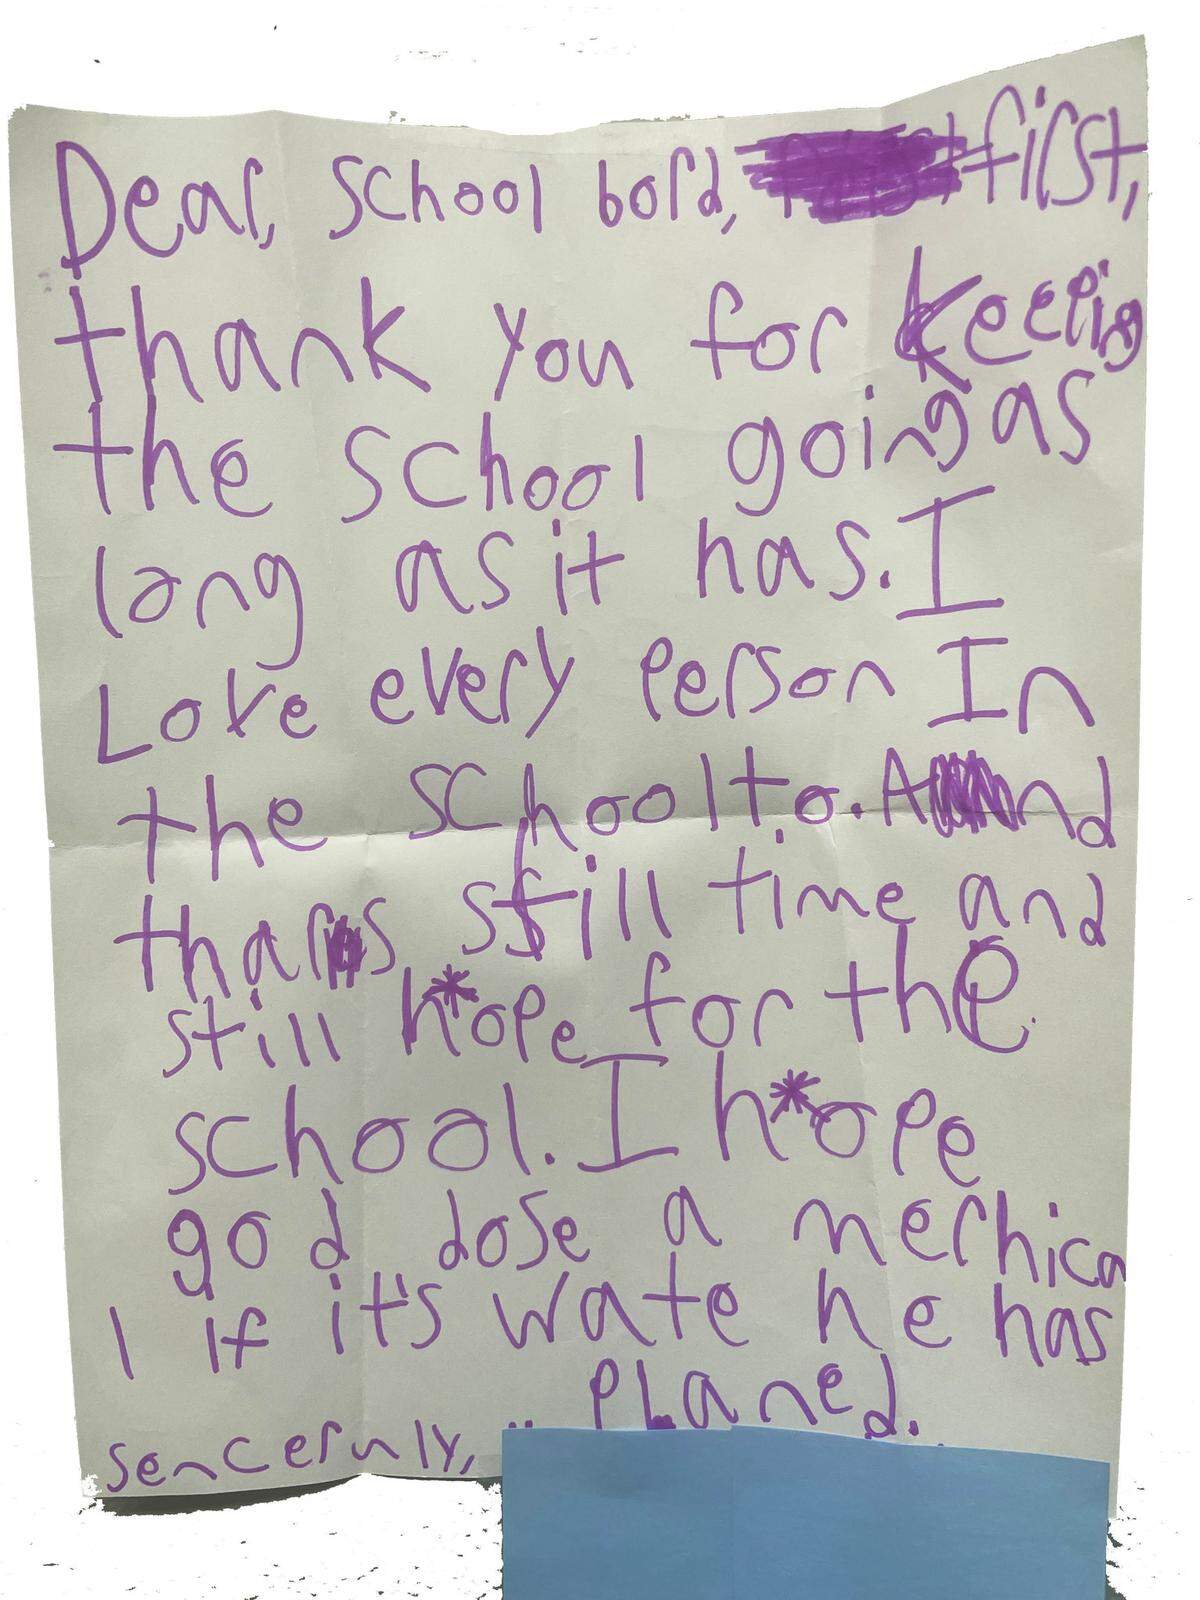 Dear, School bord, first,
thank you for keepig
the school going as
long as it has. I
Love every person In
the school to. And
thars still time and
still h*ope for the
school. I h*ope
god dose a merhica
l if it's wate he has
planed.
sencernly,